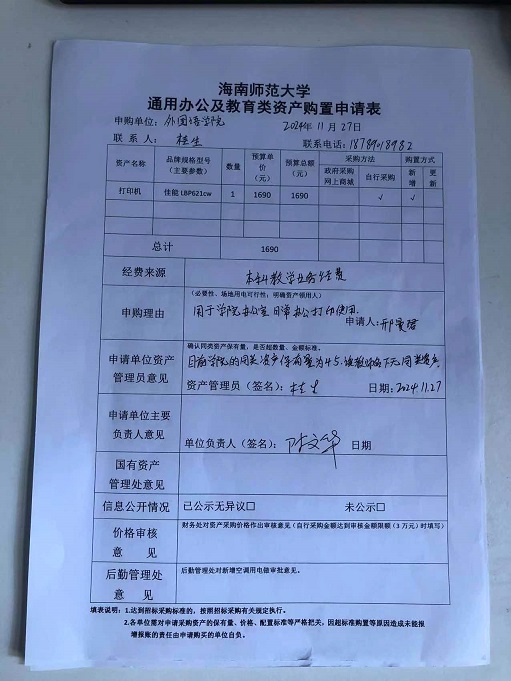 海南师范大学
通用办公及教育类资产购置申请表
申购单位：外国语学院 2024年11月27日
联系人：桂生 联系电话：18789018982
资产名称 品牌规格型号（主要参数） 数量 预算单价（元） 预算总额（元） 采购方法 购置方式
政府采购网上商城 自行采购 新增 更新
打印机 佳能 LBP621cw 1 1690 1690 √ √
总计 1690
经费来源 本科教学业务经费
申购理由 （必要性、场地用电可行性；明确资产领用人）
用于学院办公室日常办公打印使用.
申请人：邢
申请单位资产管理员意见 确认同类资产保有量，是否超数量、金额标准。
目前学院的同类资产保有量为45.该教师名下无同类资产.
资产管理员（签名）：桂生 日期：2024.11.27
申请单位主要负责人意见
单位负责人（签名）：陆文华 日期
国有资产管理处意见
信息公开情况 已公示无异议□ 未公示□
价格审核意见 财务处对资产采购价格作出审核意见（自行采购金额达到审核金额限额（3万元）时填写）
后勤管理处意见 后勤管理处对新增空调用电做审批意见。
填表说明：1.达到招标采购标准的，按照招标采购有关规定执行。
2.各单位需对申请采购资产的保有量、价格、配置标准等严格把关，因超标准购置等原因造成未能报
增报账的责任由申请购买的单位自负。